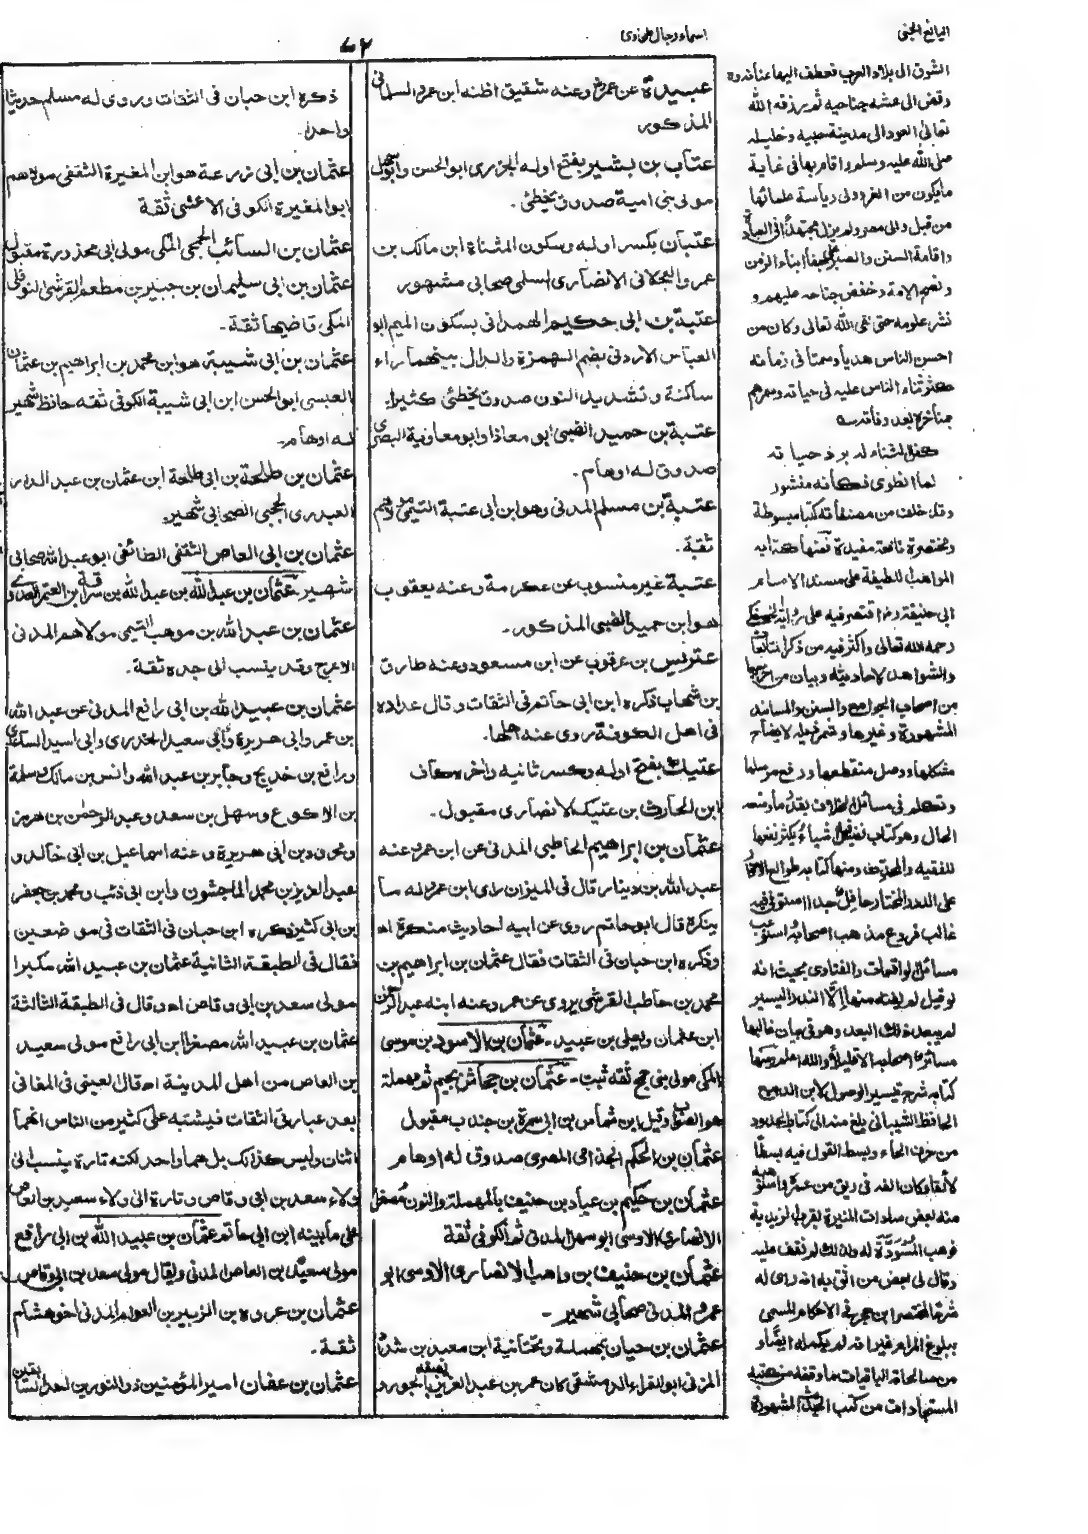 اليانع الجنى
اسماء رجال طحاوى
٧٢
عبيدة عن عمر وعنه شقيق اظنه ابن عمرو السلمانى
المذكور
عتاب بن بشير بفتح اوله الجزرى ابو الحسن وابو سهل
مولى بنى امية صدوق يخطئ.
عتبان بكسر اوله وسكون المثناة ابن مالك بن
عمرو العجلانى الانصارى السلمى صحابى مشهور
عتبة بن ابى حكيم الهمدانى بسكون الميم ابو
العباس الاردنى بضم الهمزة والدال بينهما راء
ساكنة وتشديد النون صدوق يخطئ كثيرا.
عتبة بن حميد الضبى ابو معاذ او ابو معاوية البصرى
صدوق له اوهام.
عتبة بن مسلم المدنى وهو ابن ابى عتبة التيمى مولاهم
ثقة.
عتبة غير منسوب عن عكرمة وعنه يعقوب
هو ابن حميد الضبى المذكور.
عتريس بن عرقوب عن ابن مسعود وعنه طارق
بن شهاب ذكره ابن ابى حاتم فى الثقات وقال عداده
فى اهل الكوفة روى عنه اهلها.
عتيك بفتح اوله وكسر ثانيه واخره كاف
ابن الحارث بن عتيك الانصارى مقبول.
عثمان بن ابراهيم الحاطبى المدنى عن ابن عمر وعنه
عبد الله بن دينار قال فى الميزان رأى ابن عمر له ما
ينكرة قال ابو حاتم روى عن ابيه احاديث منكرة اه
وذكره ابن حبان فى الثقات فقال عثمان بن ابراهيم بن
محمد بن حاطب القرشى يروى عن عمر وعنه ابنه عبد الرحمن
ابن عثمان ويعلى بن عبيد. عثمان بن الاسود بن موسى
المكى مولى بنى جمح ثقة ثبت. عثمان بن جحاش بجيم ثم مهملة
هو الصواب وقيل ابن شماس بن ابى سمرة بن جندب مقبول
عثمان بن الحكم الجذامى المصرى صدوق له اوهام
عثمان بن حكيم بن عباد بن حنيف بالمهملة والنون مصغرا
الانصارى الاوسى ابو سهل المدنى ثم الكوفى ثقة
عثمان بن حنيف بن واهب الانصارى الاوسى ابو
عمرو المدنى صحابى شهير.
عثمان بن حيان بمهملة وتحتانية ابن معبد بن شداد
المزنى ابو المغراء الدمشقى كان عمر بن عبد العزيز يصفه بالجور و
ذكره ابن حبان فى الثقات وروى له مسلم حديثا
واحدا.
عثمان بن ابى زرعة هو ابن المغيرة الثقفى مولاهم
ابو المغيرة الكوفى الاعشى ثقة
عثمان بن السائب الجمحى المكى مولى ابى محذورة مقبول
عثمان بن ابى سليمان بن جبير بن مطعم القرشى النوفلى
المكى قاضيها ثقة.
عثمان بن ابى شيبة هو ابن محمد بن ابراهيم بن عثمان
العبسى ابو الحسن ابن ابى شيبة الكوفى ثقه حافظ شهير
له اوهام.
عثمان بن طلحة بن ابى طلحة ابن عثمان بن عبد الدار
العبدرى الحجبى الصحابى شهير.
عثمان بن ابى العاص الثقفى الطائفى ابو عبد الله صحابى
شهير. عثمان بن عبد الله بن عبد الله بن سراقة بن المعتمر العدوى
عثمان بن عبد الله بن موهب التيمى مولاهم المدنى
الاعرج وقد ينسب الى جده ثقة.
عثمان بن عبيد الله بن ابى رافع المدنى عن عبد الله
بن عمر وابى هريرة وابى سعيد الخدرى وابى اسيد الساعدى
ورافع بن خديج وجابر بن عبد الله وانس بن مالك وسلمة
بن الاكوع وسهل بن سعد وعبد الرحمن بن هرمز
بن ابى هريرة وعنه اسماعيل بن ابى خالد و
عبد العزيز بن محمد الماجشون وابن ابى ذئب ومحمد بن جعفر
بن ابى كثير ذكره ابن حبان فى الثقات فى موضعين
فقال فى الطبقة الثانية عثمان بن عبيد الله مكبرا
مولى سعد بن ابى وقاص اه وقال فى الطبقة الثالثة
عثمان بن عبيد الله مصغرا ابن ابى رافع مولى سعيد
بن العاص من اهل المدينة اه قال العينى فى المغانى
بعد عبارة الثقات فيشتبه على كثير من الناس انهما
اثنان وليس كذلك بل هما واحد لكنه تارة ينسب الى
ولاء سعد بن ابى وقاص وتارة الى ولاء سعيد بن العاص
على ما بينه ابن ابى حاتم عثمان بن عبيد الله بن ابى رافع
مولى سعيد بن العاص المدنى ويقال مولى سعد بن ابى وقاص
عثمان بن عروة بن الزبير بن العوام المدنى اخو هشام
ثقة.
عثمان بن عفان امير المؤمنين ذو النورين احد السابقين
الشوق الى بلاد العرب فعطف اليها عنانه و
وقض الى عشه جناحيه ثم رزقه الله
تعالى العود الى مدينة حبيبه وخليله
صلى الله عليه وسلم واقام بها فى غاية
ما يكون من العز وولى رياسة علمائها
من قبل والى مصر ولم يزل مجتهدا فى العبادة
واقامة السنن والصبر على جفاء ابناء الزمن
ونصح الامة وخفض جناحه عليهم و
نشر علومه حتى لقى الله تعالى وكان من
احسن الناس هديا وسمتا فى زمانه
كثر ثناء الناس عليه فى حياته
كفل الثناء له برد حياته
لما انطوى فكأنه منشور
وقد خلف من مصنفاته كتبا مبسوطة
ومختصرة نافعة مفيدة فمنها كتابه
المواهب اللطيفة على مسند الامام
ابى حنيفة رض اقتصر فيه على رواية الحصكفى
رحمه الله تعالى واكثر فيه من ذكر المتابعات
والشواهد لاحاديثه وبيان من اخرجها
من اصحاب الجوامع والسنن والمسانيد
المشهورة وغيرها وشمر ذيله لايضاح
مشكلها ووصل منقطعها ورفع مرسلها
وتكلم فى مسائل الخلاف بقدر ما وسعه
الحال وهو كتاب نفيس فيه اشياء يكثر نفعها
للفقيه والمحدث ومنها كتابه طوالع الانوار
على الدر المختار حافل جدا استوفى فيه
غالب فروع مذهب اصحابه واستوعب
مسائل الواقعات والفتاوى بحيث انه
لو قيل لم يفته منها الا النذر اليسير
لم يبعد ذلك البعد وهو فى بيان غالبها
كتابه شرح تيسير الوصول لابن الديبع
الحافظ الشيبانى بلغ منه الى كتاب الحدود
من حرف الحاء وبسط القول فيه بسطا
منه لبعض سادات المنيرة بقرب الزيدية
وقال لى بعض من اثق به انه رأى له
ببلوغ المرام غير انه لم يكمله ايضا و
المستجادات من كتب الحديث المشهورة